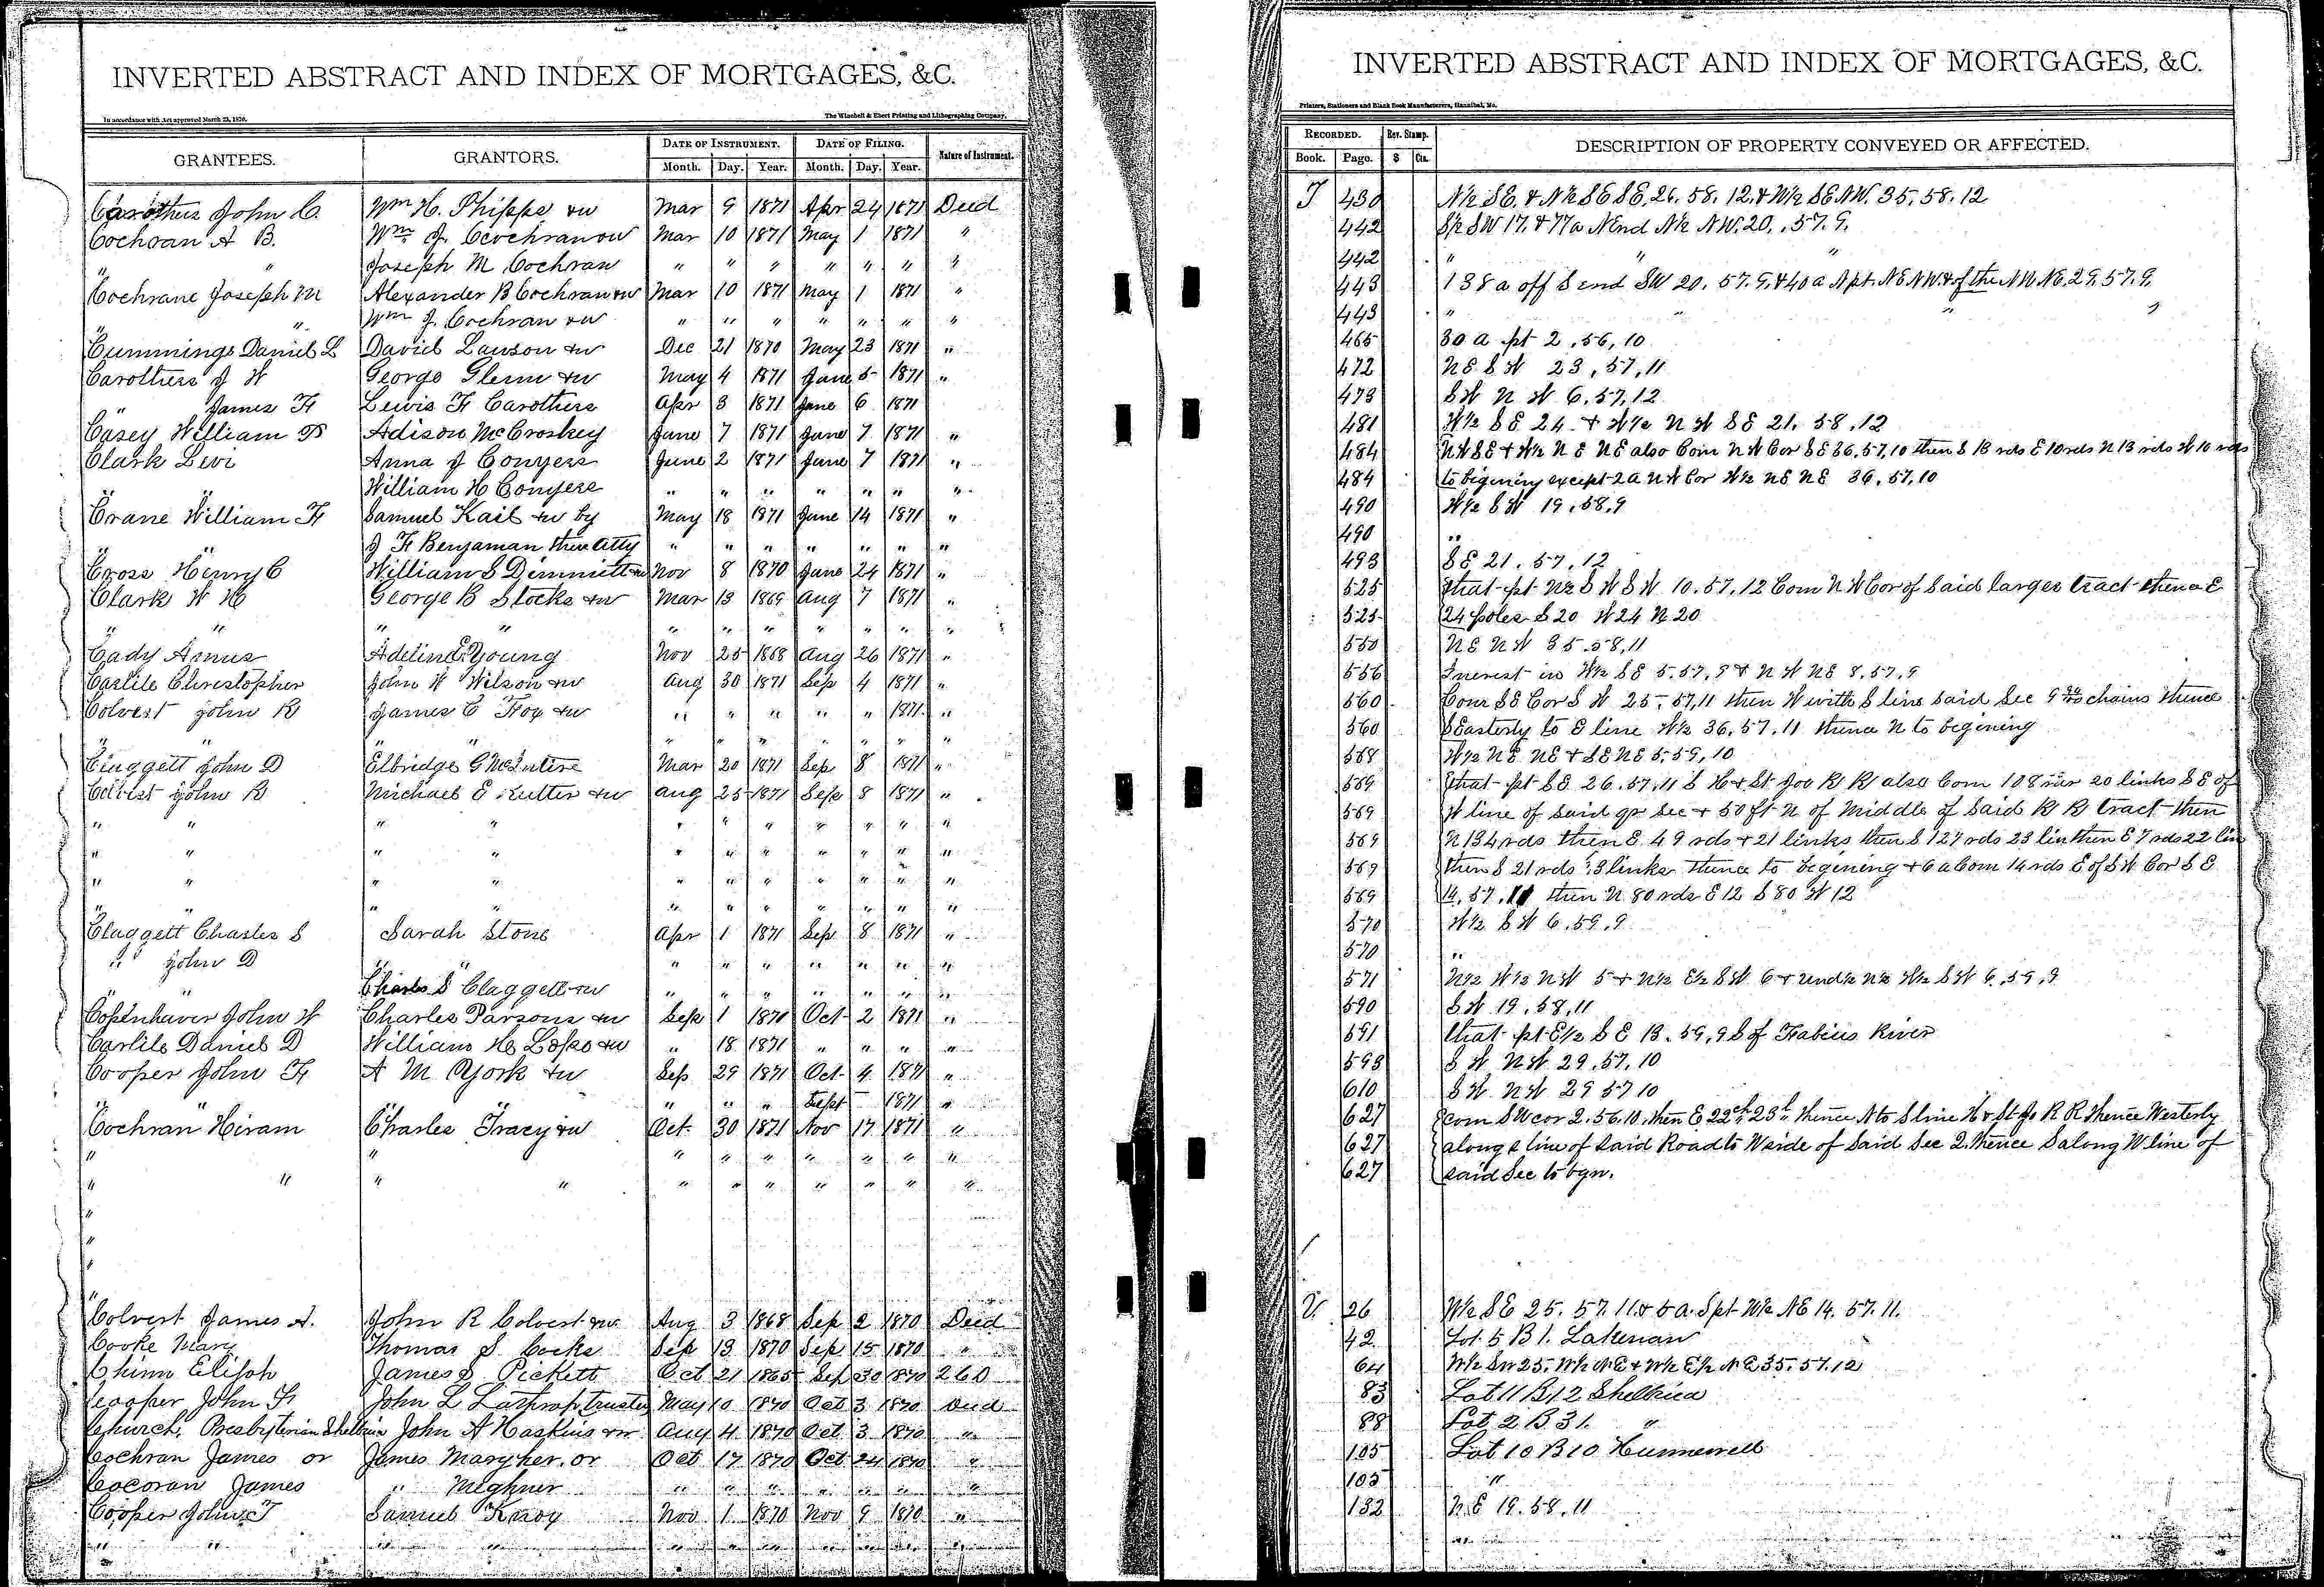 INVERTED ABSTRACT AND INDEX OF MORTGAGES, &C.
In accordance with Act approved March 25, 1870. The Winchell & Ebert Printing and Lithographing Company,
GRANTEES. GRANTORS. DATE OF INSTRUMENT. DATE OF FILING. Nature of Instrument.
Month. Day. Year. Month. Day. Year.
Carothers John C. Wm H. Phipps &w Mar 9 1871 Apr 24 1871 Deed
Cochran A B. Wm J. Cochran &w Mar 10 1871 May 1 1871 "
" " Joseph M Cochran " " " " " " "
Cochrane Joseph M Alexander B Cochran &w Mar 10 1871 May 1 1871 "
" " Wm J. Cochran &w " " " " " " "
Cummings Daniel L David Lawson &w Dec 21 1870 May 23 1871 "
Carothers J W George Glenn &w May 4 1871 June 5 1871 "
" James F Lewis F Carothers Apr 3 1871 June 6 1871
Casey William P Adison McCroskey June 7 1871 June 7 1871 "
Clark Levi Anna J Conyers June 2 1871 June 7 1871 "
" William H Conyers " " " " " " "
Crane William F Samuel Kail &w by May 18 1871 June 14 1871 "
" J F Benjaman their Atty " " " " " " "
Cross Henry C William S Dimmitt &w Nov 8 1870 June 24 1871 "
Clark W H George B Stocks &w Mar 13 1869 Aug 7 1871 "
" " " " " " " " " " "
Cady Asmus Adeline E Young Nov 25 1868 Aug 26 1871 "
Carlile Christopher John W Wilson &w Aug 30 1871 Sep 4 1871 "
Colvert John R James C Fox &w " " " " " 1871 "
" " " " " " " " " "
Claggett John D Elbridge G McIntire Mar 20 1871 Sep 8 1871 "
Colvert John R Michael E Rutter &w Aug 25 1871 Sep 8 1871 "
" " " " " " " " " " "
" " " " " " " " " " "
" " " " " " " " " " "
" " " " " " " " " " "
Claggett Charles S Sarah Stone Apr 1 1871 Sep 8 1871 "
" John D " " " " " " " " "
" " Charles S Claggett &w " " " " " " "
Copenhaver John W Charles Parsons &w Sep 1 1870 Oct 2 1871 "
Carlile Daniel D William H &w " 18 1871 " " " "
Cooper John F A M York &w Sep 29 1871 Oct 4 1871 "
" " " " " " " Sept 1871 "
Cochran Hiram Charles Tracy &w Oct 30 1871 Nov 17 1871 "
" " " " " " " " "
" " " " " " " " " " "
"
"
"
"
Colvert James A. John R Colvert &w Aug 3 1868 Sep 2 1870 Deed
Cooke Mary Thomas S Cocke Sep 13 1870 Sep 15 1870 "
Chinn Elijah James S Pickett Oct 21 1865 Sep 30 1870 260
Cooper John F John L Lathrop, trustee May 10 1870 Oct 3 1870 Deed
Church, Presbyterian Shelbina John A Haskins &w Aug 4 1870 Oct 3 1870 "
Cochran James or James Maryher. or Oct 17 1870 Oct 24 1870 "
Cocoran James " Meghner " " " " " " "
Cooper John T Samuel Knox Nov 1 1870 Nov 9 1870 "
INVERTED ABSTRACT AND INDEX OF MORTGAGES, &C.
Printers, Stationers and Blank Book Manufacturers, Hannibal, Mo.
RECORDED. Rev. Stamp. DESCRIPTION OF PROPERTY CONVEYED OR AFFECTED.
Book. Page. $ Cts.
T 430 N½ SE. & N½ SE SE. 26. 58. 12. & W½ SE NW. 35. 58. 12
442 S½ SW 17. & 77a N End N½ NW. 20. , 57. 9.
442 " " "
443 138 a off S end SW 20. 57. 9. & 40 a N pt. NE NW. & of the NW NE. 29. 57. 9.
443 " " "
465 30 a pt 2 . 56, 10
472 NE SW 23, 57, 11
473 SW NW 6. 57. 12
481 W½ SE 24. & W½ NW SE 21. 58. 12
484 NW SE & W½ NE NE also Com NW Cor SE 36. 57. 10 then S 13 rds E 10 rds N 13 rds W 10 rds
484 to begining except 2a NW Cor W½ NE NE 36. 57. 10
490 W½ SW 19. 58. 9
490 "
493 SE 21. 57. 12
525 that pt N½ SW SW 10. 57. 12 Com NW Cor of Said larger tract thence E
525 24 poles S 20 W 24 N 20
550 NE NW 35. 58. 11
556 Inerest in W½ SE 5. 57. 9 & NW NE 8. 57. 9
560 Com SE Cor SW 25. 57. 11 then W with S line said Sec 9 chains thence
560 SEasterly to E line W½ 36. 57. 11 thence N to begining
568 W½ NE NE & SE NE 5. 59. 10
569 that pt SE 26. 57. 11 S H & St Joe R R also Com 108 rds 20 links SE of
569 W line of said qr Sec & 50 ft N of Middle of Said R R tract then
569 N 134 rds then E 49 rds & 21 links then S 127 rds 23 lin then E 7 rds 22 lin
569 then S 21 rds 3 links thence to begining & 6 a Com 14 rds E of SW Cor SE
569 14. 57. 11 then N 80 rds E 12 S 80 W 12
570 W½ SW 6. 59. 9
570 "
571 N½ W½ NW 5 & N½ E½ SW 6 & und½ N½ W½ SW 6. 59. 9
590 SW 19. 58. 11
591 that pt E½ SE 13. 59. 9 S of Fabius River
593 SW NW 29. 57. 10
610 SW NW 29 57 10
627 com SW cor 2. 56. 10. then E 22 ch 25 l thence N to S line H & St Jo R R thence Westerly
627 along S line of said Road to W side of Said Sec 2. thence S along W line of
627 said Sec to bgn.
U. 26 W½ SE 25. 57. 11. & 5 a. S pt W½ NE 14. 57. 11.
42. Lot 5 B 1. Lakenan
64 W½ SW 25. W½ NE & W½ E½ NE 35. 57. 12
83 Lot 11 B 12 Shelbina
88 Lot 2 B 31. "
105 Lot 10 B 10 Hunnewell
105 "
132 NE 19. 58. 11